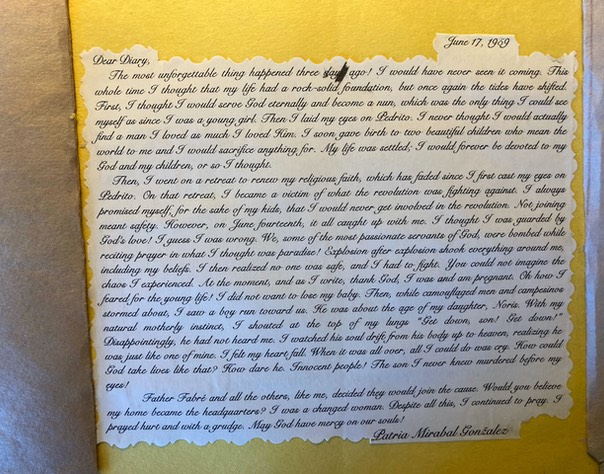 June 17, 1959
Dear Diary,
The most unforgettable thing happened three days ago! I would have never seen it coming. This
whole time I thought that my life had a rock-solid foundation, but once again the tides have shifted.
First, I thought I would serve God eternally and become a nun, which was the only thing I could see
myself as since I was a young girl. Then I laid my eyes on Pedrito. I never thought I would actually
find a man I loved as much I loved Him. I soon gave birth to two beautiful children who mean the
world to me and I would sacrifice anything for. My life was settled; I would forever be devoted to my
God and my children, or so I thought.
Then, I went on a retreat to renew my religious faith, which has faded since I first cast my eyes on
Pedrito. On that retreat, I became a victim of what the revolution was fighting against. I always
promised myself, for the sake of my kids, that I would never get involved in the revolution. Not joining
meant safety. However, on June fourteenth, it all caught up with me. I thought I was guarded by
God's love! I guess I was wrong. We, some of the most passionate servants of God, were bombed while
reciting prayer in what I thought was paradise! Explosion after explosion shook everything around me,
including my beliefs. I then realized no one was safe, and I had to fight. You could not imagine the
chaos I experienced. At the moment, and as I write, thank God, I was and am pregnant. Oh how I
feared for the young life! I did not want to lose my baby. Then, while camouflaged men and campesinos
stormed about, I saw a boy run toward us. He was about the age of my daughter, Noris. With my
natural motherly instinct, I shouted at the top of my lungs "Get down, son! Get down!"
Disappointingly, he had not heard me. I watched his soul drift from his body up to heaven, realizing he
was just like one of mine. I felt my heart fall. When it was all over, all I could do was cry. How could
God take lives like that? How dare he. Innocent people! The son I never knew murdered before my
eyes!
Father Fabré and all the others, like me, decided they would join the cause. Would you believe
my home became the headquarters? I was a changed woman. Despite all this, I continued to pray. I
prayed hurt and with a grudge. May God have mercy on our souls!
Patria Mirabal González